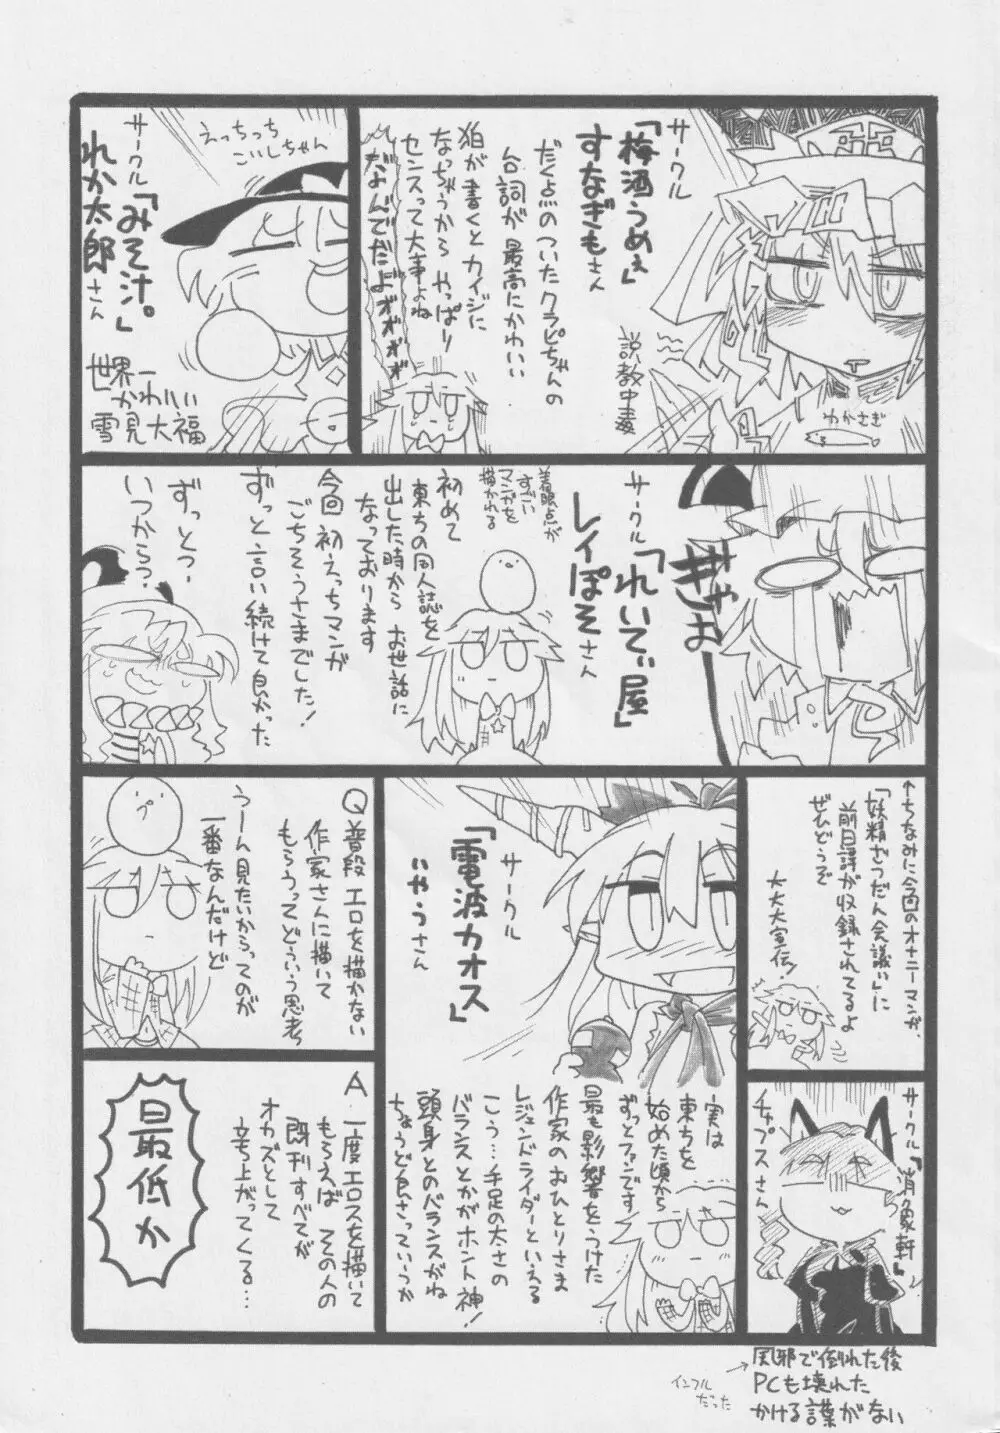 サークル
「梅酒うめぇ」
すなぎもさん
だく点のついたクラピちゃんの
台詞が最高にかわいい
狛が書くとカイジに
なっちゃうから やっぱー
センスって大事よね
だよんでだよォォォォ
説教中毒
わかさぎ
えっちっち
こいしちゃん
サークル
「みそ汁。」
れか太郎さん
世界一
かわいい
雪見大福
ぎゃお
サークル
「れいてぃ屋」
レイぽそさん
着眼点が
すごい
マンガを
描かれる
初めて
東方の同人誌を
出した時から お世話に
なっております
今回 初えっちマンガ
ごちそうさまでした!
ずっと言い続けて良かった
ずっとっ?
いつからっ?
↑ちなみに今回のオナニーマンガ、
「妖精さつだん会議い」に
前日譚が収録されてるよ
ぜひどうぞ
大大大宣伝!
サークル
「電波カオス」
いやうさん
実は
東方を
始めた頃から
ずっとファンです
最も影響をうけた
作家のおひとりさま
レジェンドライダーといえる
こう…手足の太さの
バランスとかがホント神!
頭身とのバランスがね
ちょうど良さっていうか
Q 普段エロを描かない
作家さんに描いて
もらうってどういう思考
うーん見たいからってのが
一番なんだけど
A.一度エロスを描いて
もらえば その人の
既刊すべてが
オカズとして
立ち上がってくる…
最低か
サークル「消象軒」
チャプスさん
風邪で倒れた後
PCも壊れた
かける言葉がない
→インフル
だった